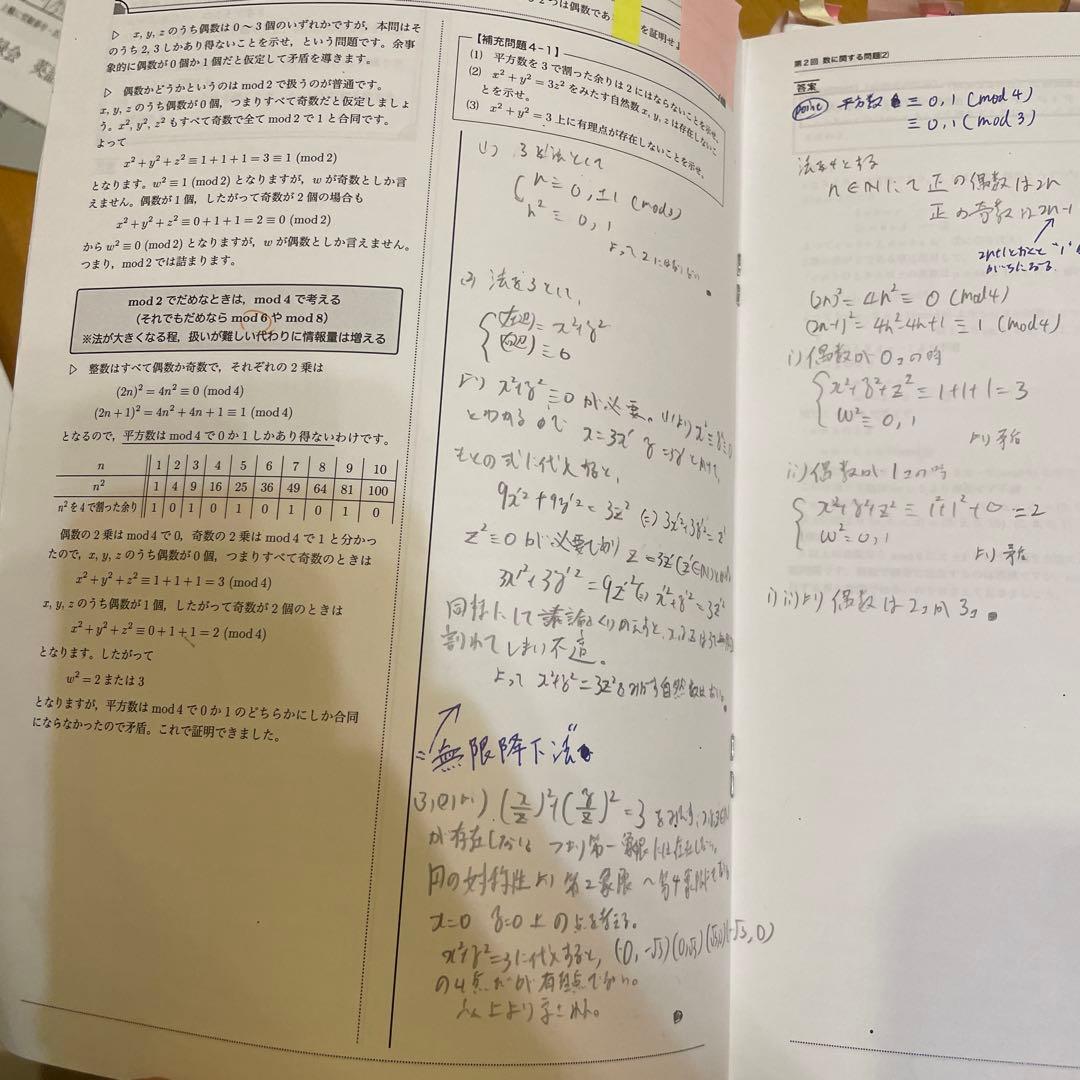 ▷ x, y, z のうち偶数は 0 〜 3 個のいずれかですが，本問はそ
のうち 2, 3 しかあり得ないことを示せ，という問題です。余事
象的に偶数が 0 個か 1 個だと仮定して矛盾を導きます。
▷ 偶数かどうかというのは mod 2 で扱うのが普通です。
x, y, z のうち偶数が 0 個，つまりすべて奇数だと仮定しましょ
う。x², y², z² もすべて奇数で全て mod 2 で 1 と合同です。
よって
x² + y² + z² ≡ 1 + 1 + 1 = 3 ≡ 1 (mod 2)
となります。w² ≡ 1 (mod 2) となりますが，w が奇数としか言
えません。偶数が 1 個，したがって奇数が 2 個の場合も
x² + y² + z² ≡ 0 + 1 + 1 = 2 ≡ 0 (mod 2)
から w² ≡ 0 (mod 2) となりますが，w が偶数としか言えません。
つまり，mod 2 では詰まります。
mod 2 でだめなときは，mod 4 で考える
(それでもだめなら mod 6 や mod 8)
※法が大きくなる程，扱いが難しい代わりに情報量は増える
▷ 整数はすべて偶数か奇数で，それぞれの 2 乗は
(2n)² = 4n² ≡ 0 (mod 4)
(2n + 1)² = 4n² + 4n + 1 ≡ 1 (mod 4)
となるので，平方数は mod 4 で 0 か 1 しかあり得ないわけです。
n 1 2 3 4 5 6 7 8 9 10
n² 1 4 9 16 25 36 49 64 81 100
n² を 4 で割った余り 1 0 1 0 1 0 1 0 1 0
偶数の 2 乗は mod 4 で 0，奇数の 2 乗は mod 4 で 1 と分かっ
たので，x, y, z のうち偶数が 0 個，つまりすべて奇数のときは
x² + y² + z² ≡ 1 + 1 + 1 = 3 (mod 4)
x, y, z のうち偶数が 1 個，したがって奇数が 2 個のときは
x² + y² + z² ≡ 0 + 1 + 1 = 2 (mod 4)
となります。したがって
w² = 2 または 3
となりますが，平方数は mod 4 で 0 か 1 のどちらかにしか合同
にならなかったので矛盾。これで証明できました。
つは偶数であ を証明せよ
【補充問題4-1】
(1) 平方数を 3 で割った余りは 2 にはならないことを示せ。
(2) x² + y² = 3z² をみたす自然数 x, y, z は存在しないこ
とを示せ。
(3) x² + y² = 3 上に有理点が存在しないことを示せ。
(1) 3を法として
n ≡ 0, ±1 (mod3)
n² ≡ 0, 1
よって2にはならない
(2) 法を3として,
(左辺) = x²+y²
(右辺) ≡ 0
より x²+y² ≡ 0 が必要。(1)より x²≡y²≡0
とわかるので x=3x' y=3y' とおいて,
もとの式に代入すると,
9x'²+9y'² = 3z² ⇔ 3x'²+3y'² = z²
z² ≡ 0 が必要であり z=3z'(z'∈N)
3x'²+3y'² = 9z'² ⇔ x'²+y'² = 3z'²
同様にして議論をくりかえすと, x,y,zは3で
割れてしまい不適。
よって x²+y²=3z²をみたす自然数はない。
= 無限降下法
(3) (2)より (x/z)²+(y/z)² = 3 をみたす
が存在しない つまり第一象限には存在しない。
円の対称性より 第2象限〜第4象限にも
x=0 y=0 上の点を考える。
x²+y²=3に代入すると, (0, -√3)(0,√3)(√3,0)(-√3, 0)
の4点だが有理点でない。
以上より示された。
第2回 数に関する問題②
答案
point 平方数 ≡ 0, 1 (mod 4)
≡ 0, 1 (mod 3)
法を4とする
n∈Nにて 正の偶数は2n
正の奇数は2n-1
2n+1とおくと "1"
(2n)² = 4n² ≡ 0 (mod 4)
(2n-1)² = 4n²-4n+1 ≡ 1 (mod 4)
i) 偶数が0コの時
x²+y²+z² ≡ 1+1+1 = 3
w² ≡ 0, 1
より矛盾
ii) 偶数が1コの時
x²+y²+z² ≡ 1²+1²+0 = 2
w² = 0, 1
より矛盾
i) ii)より 偶数は2コか3コ